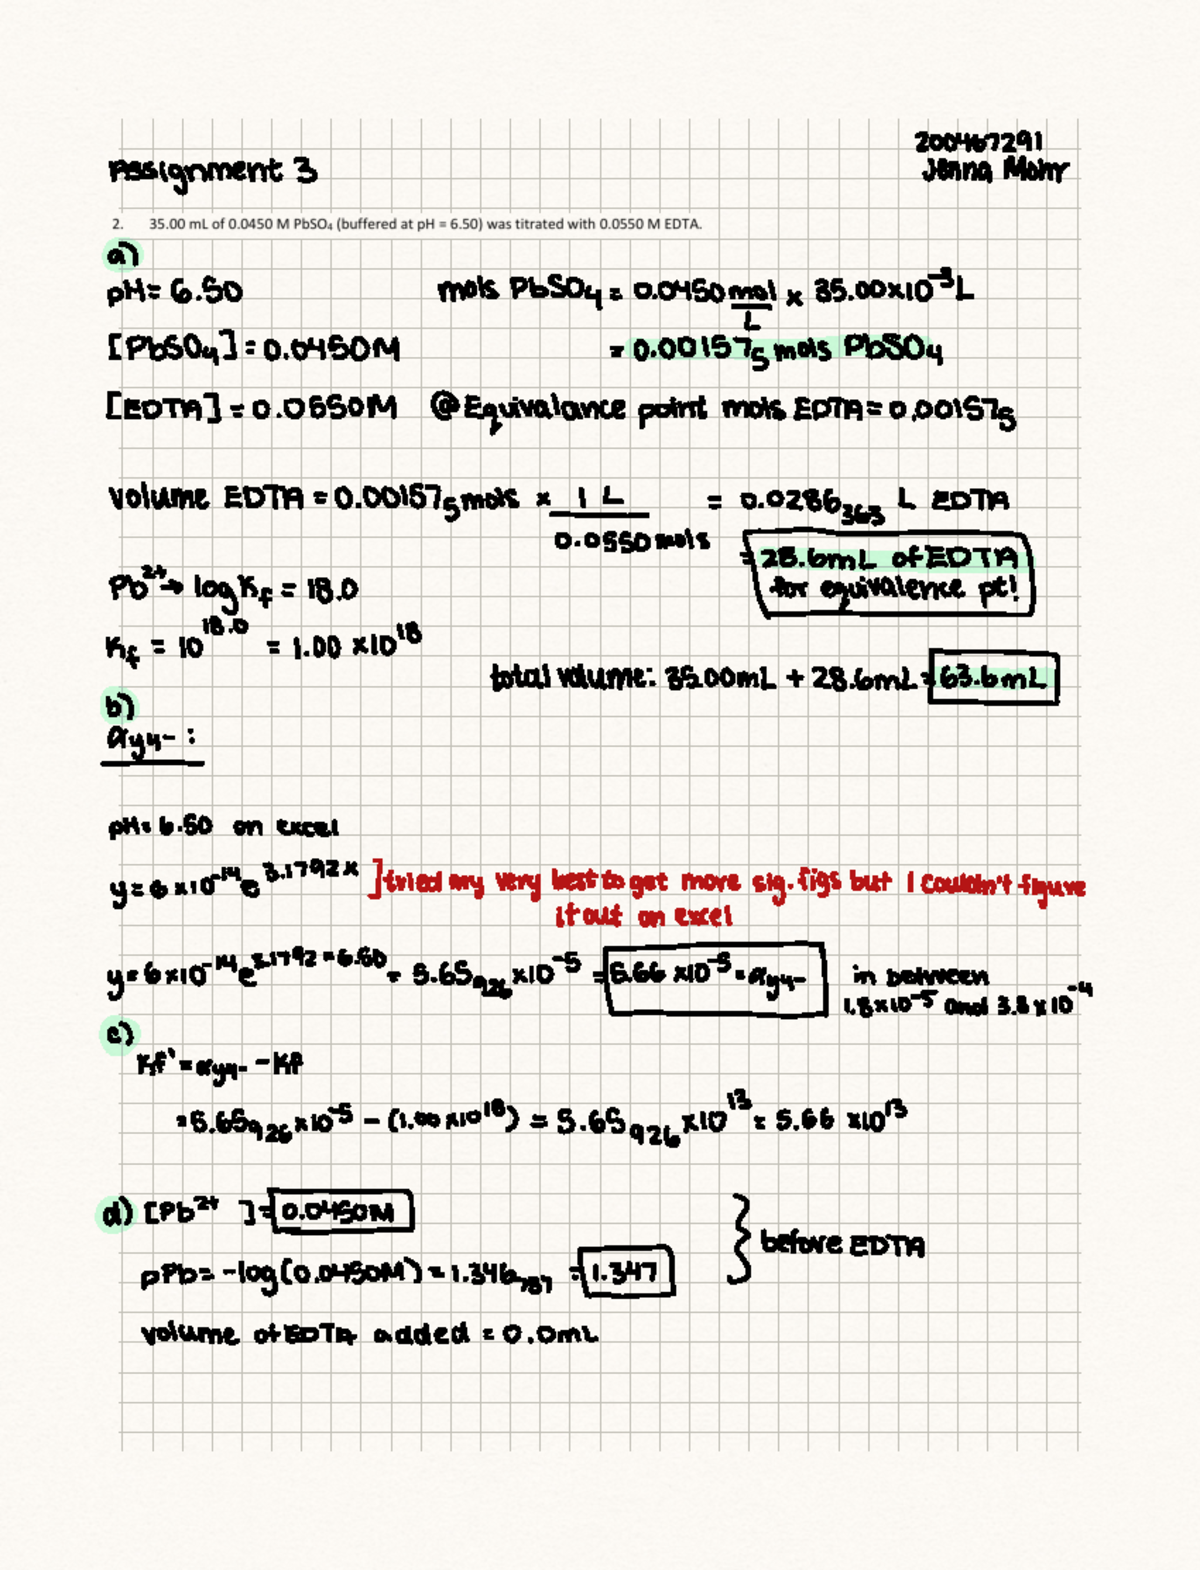 200467291
Assignment 3
Jenna Mohr
2. 35.00 mL of 0.0450 M PbSO₄ (buffered at pH = 6.50) was titrated with 0.0550 M EDTA.
a)
pH= 6.50
mols PbSO₄ = 0.0450 mol/L x 35.00x10⁻³L
[PbSO₄] = 0.0450M
= 0.00157₅ mols PbSO₄
[EDTA] = 0.0550M @ Equivalance point mols EDTA = 0.00157₅
volume EDTA = 0.00157₅ mols x 1 L / 0.0550 mols = 0.0286₃₆₃ L EDTA
= 28.6mL of EDTA
for equivalence pt!
Pb²⁺→ log Kf = 18.0
Kf = 10¹⁸·⁰ = 1.00 x10¹⁸
total volume: 35.00mL + 28.6mL = 63.6mL
b)
αy4- :
pH= 6.50 on excel
y = 6 x10⁻¹⁴e^3.1792x ] tried my very best to get more sig. figs but I couldn't figure
it out on excel
y = 6x10⁻¹⁴e^3.1792*6.50 = 5.65₉₂₆ x10⁻⁵ = 5.66 x10⁻⁵ = αy4- in between
1.8x10⁻⁵ and 3.8 x 10⁻⁴
c)
Kf' = αy4- - Kf
= 5.65₉₂₆ x10⁻⁵ - (1.00 x10¹⁸) = 5.65₉₂₆ x10¹³ = 5.66 x10¹³
d) [Pb²⁺ ] = 0.0450M
before EDTA
pPb= -log(0.0450M) = 1.346₇₈₇ = 1.347
volume of EDTA added = 0.0mL